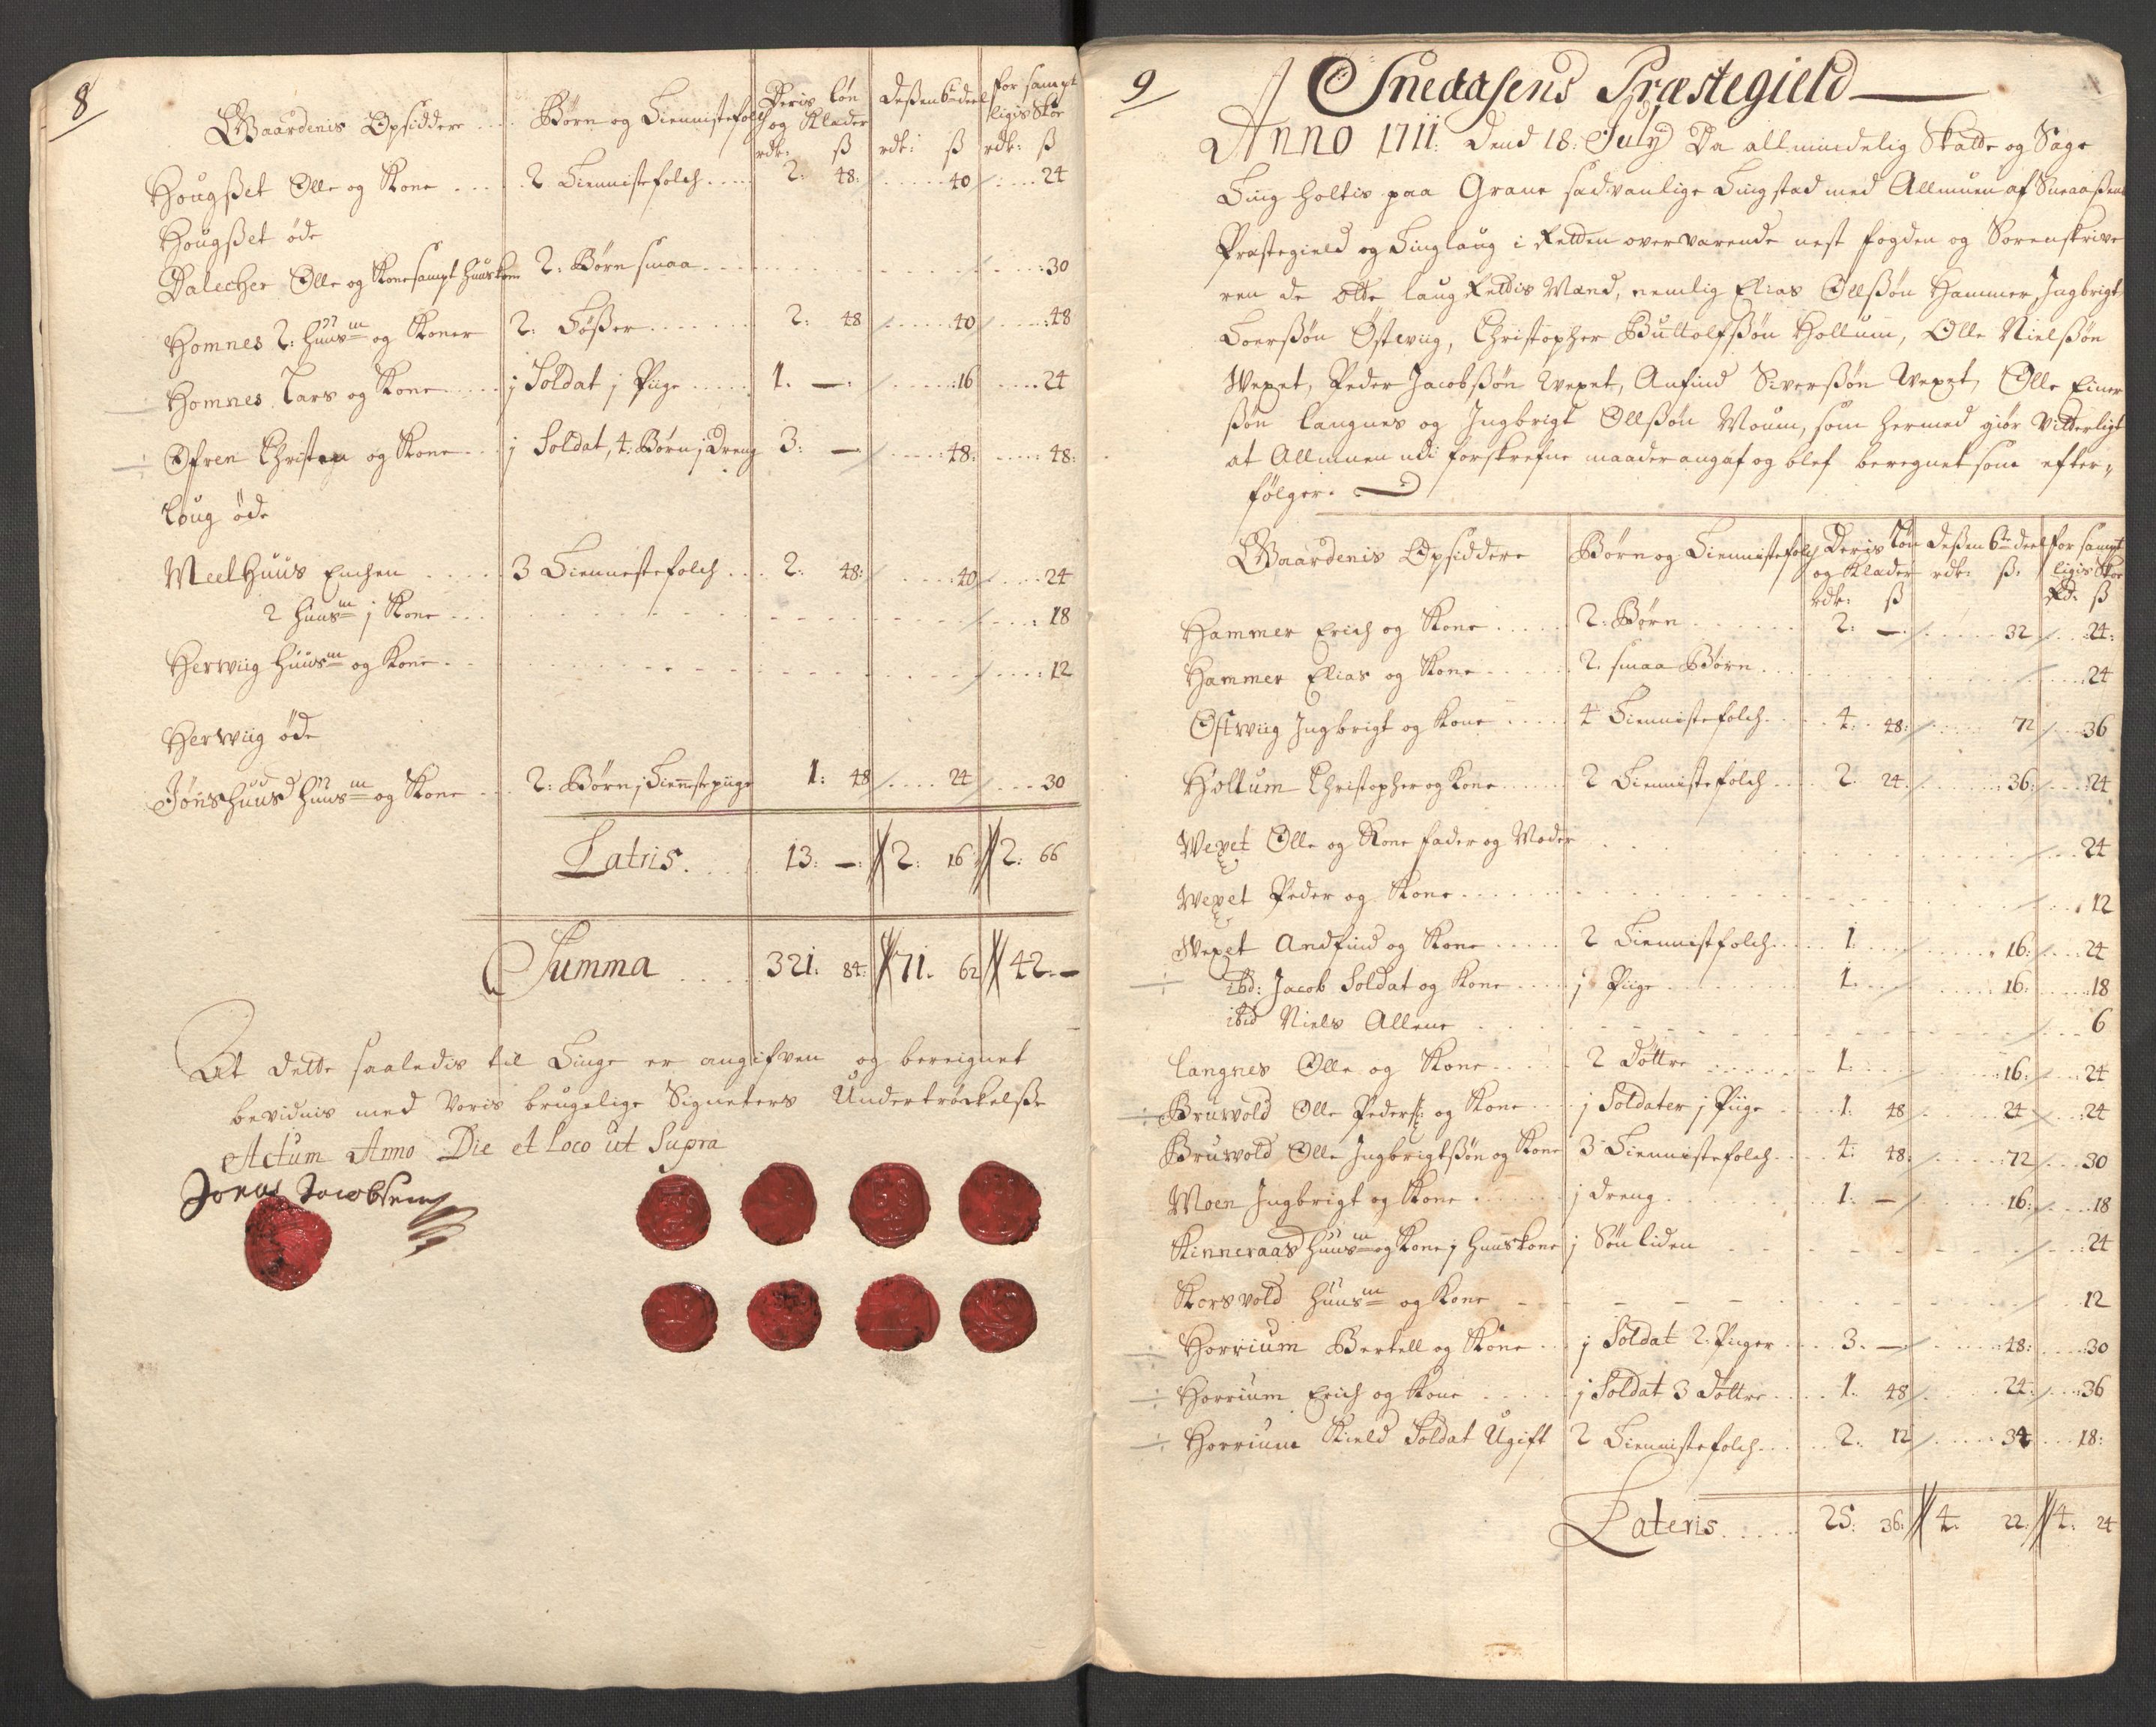 8
Gaardenis Opsiddere . . . Børn og Tiennistefolch Deris løn og Klæder Deßen 6te deel for samptligis Skoe
rdr: ß rdr: ß rdr: ß
Hougßet Olle og Kone . . . . 2 Tiennistefolch . . . . 2: 48: . . . . 40 . . . . 24
Hougßet øde
Dalecher Olle og Kone sampt huuskone 2: Børn smaa . . . . 30
Homnes 2: huusm og Koner 2: Tøßer . . . . 2: 48 . . . . 40 . . . . 48
Homnes Lars og Kone . . . . j Soldat j Piige . . . . 1: — . . . . 16 . . . . 24
÷ Ofren Christen og Kone . . j Soldat, 4: Børn j Dreng 3: — . . . . 48: . . . . 48:
Loug øde
Melhuus Enchen . . . . 3 Tiennestefolch . . . 2: 48: . . . . 40 . . . . 24
2 huusm j Kone . . . . 18
Herwiig huusm og Kone . . . . 12
Herwiig øde
Jønshuus huusm og Kone . . . 2: Børn j Tiennestepiige 1: 48 . . . . 24 . . . . 30
Latris . . . . 13: — 2: 16 2: 66
Summa . . . . 321: 84: 71: 62 42: —
At dette saaledis til Tinge er angifven og bereignet
bevidnis med Voris brugelige Signeters Undertrøckelße
Actum Anno Die et Loco ut Supra
Jonas Jacobsen
9
Sneaasens Præstegield
Anno 1711: Dend 18: July Da allmindelig Skatte og Sage
Ting holtis paa Grane sædvanlige Tingstad med Allmuen af Sneaaßens
Præstegield og Tinglaug i Retten overværende nest fogden og Sorenskrive
ren de otte laug Rettis Mænd, nemlig Elias Olßøn Hammer, Ingbrigt
Toerßøn Østwiig, Christopher Buttolfßøn Hollum, Olle Nielßøn
Wexet, Peder Jacobßøn Wexet, Anfind Siverßøn Wexet, Olle Einer
ßøn Langnes og Ingbrigt Olßøn Moum, som hermed giør vitterligt
at Allmuen udi forskrefne maader angaf og blef beregnet som efter-
følger.
Gaardenis Opsiddere Børn og Tiennistefolch Deris løn og Klæder Deßen 6te deel for samptligis Skoe
rdr: ß rdr: ß: Rd: ß
Hammer Erich og Kone . . . . 2: Børn . . . . 2: — . . . . 32 . . . . 24:
Hammer Elias og Kone . . . . 2: smaa Børn . . . . 24
Østwiig Ingbrigt og Kone . . . . 4 Tiennistefolch . . . 4: 48: . . . . 72 . . . . 36
Hollum Christopher og Kone . . . . 2 Tiennistefolch . . . 2: 24: . . . . 36: . . . . 24
Wexet Olle og Kone fader og Moder . . . . 24
Wexet Peder og Kone . . . . 12
Wexet Andfind og Kone . . . . 2 Tiennistfolch . . . 1: . . . . 16: . . . . 24
÷ ibd: Jacob Soldat og Kone . . . . j Piige . . . . 1: . . . . 16: . . . . 18
ibid Niels Allene . . . . 6
Langnes Olle og Kone . . . . 2 Døttre . . . . 1: . . . . 16: . . . . 24
÷ Bruwold Olle Peders: og Kone . . . j Soldater j Piige . . . 1: 48 . . . . 24 . . . . 24
Bruwold Olle Ingbrigtßøn og Kone 3 Tiennistefolch . . . 4: 48: . . . . 72 . . . . 30
Moen Ingbrigt og Kone . . . . j dreng . . . . 1: — . . . . 16: . . . . 18
Kinneraas huusm og Kone j huuskone j Søn liden . . . . 24
Korsvold huusm og Kone . . . . 12
÷ Horrium Bertell og Kone . . . j Soldat 2: Piiger . . . . 3: — . . . . 48: . . . . 30
÷ Horrium Erich og Kone . . . . j Soldat 3 Døttre . . . . 1: 48 . . . . 24: . . . . 36
÷ Horrium Kield Soldat Ugift 2 Tiennistefolch . . . . 2: 12 . . . . 34 . . . . 18:
Lateris . . . . 25: 36: 4: 22: 4: 24